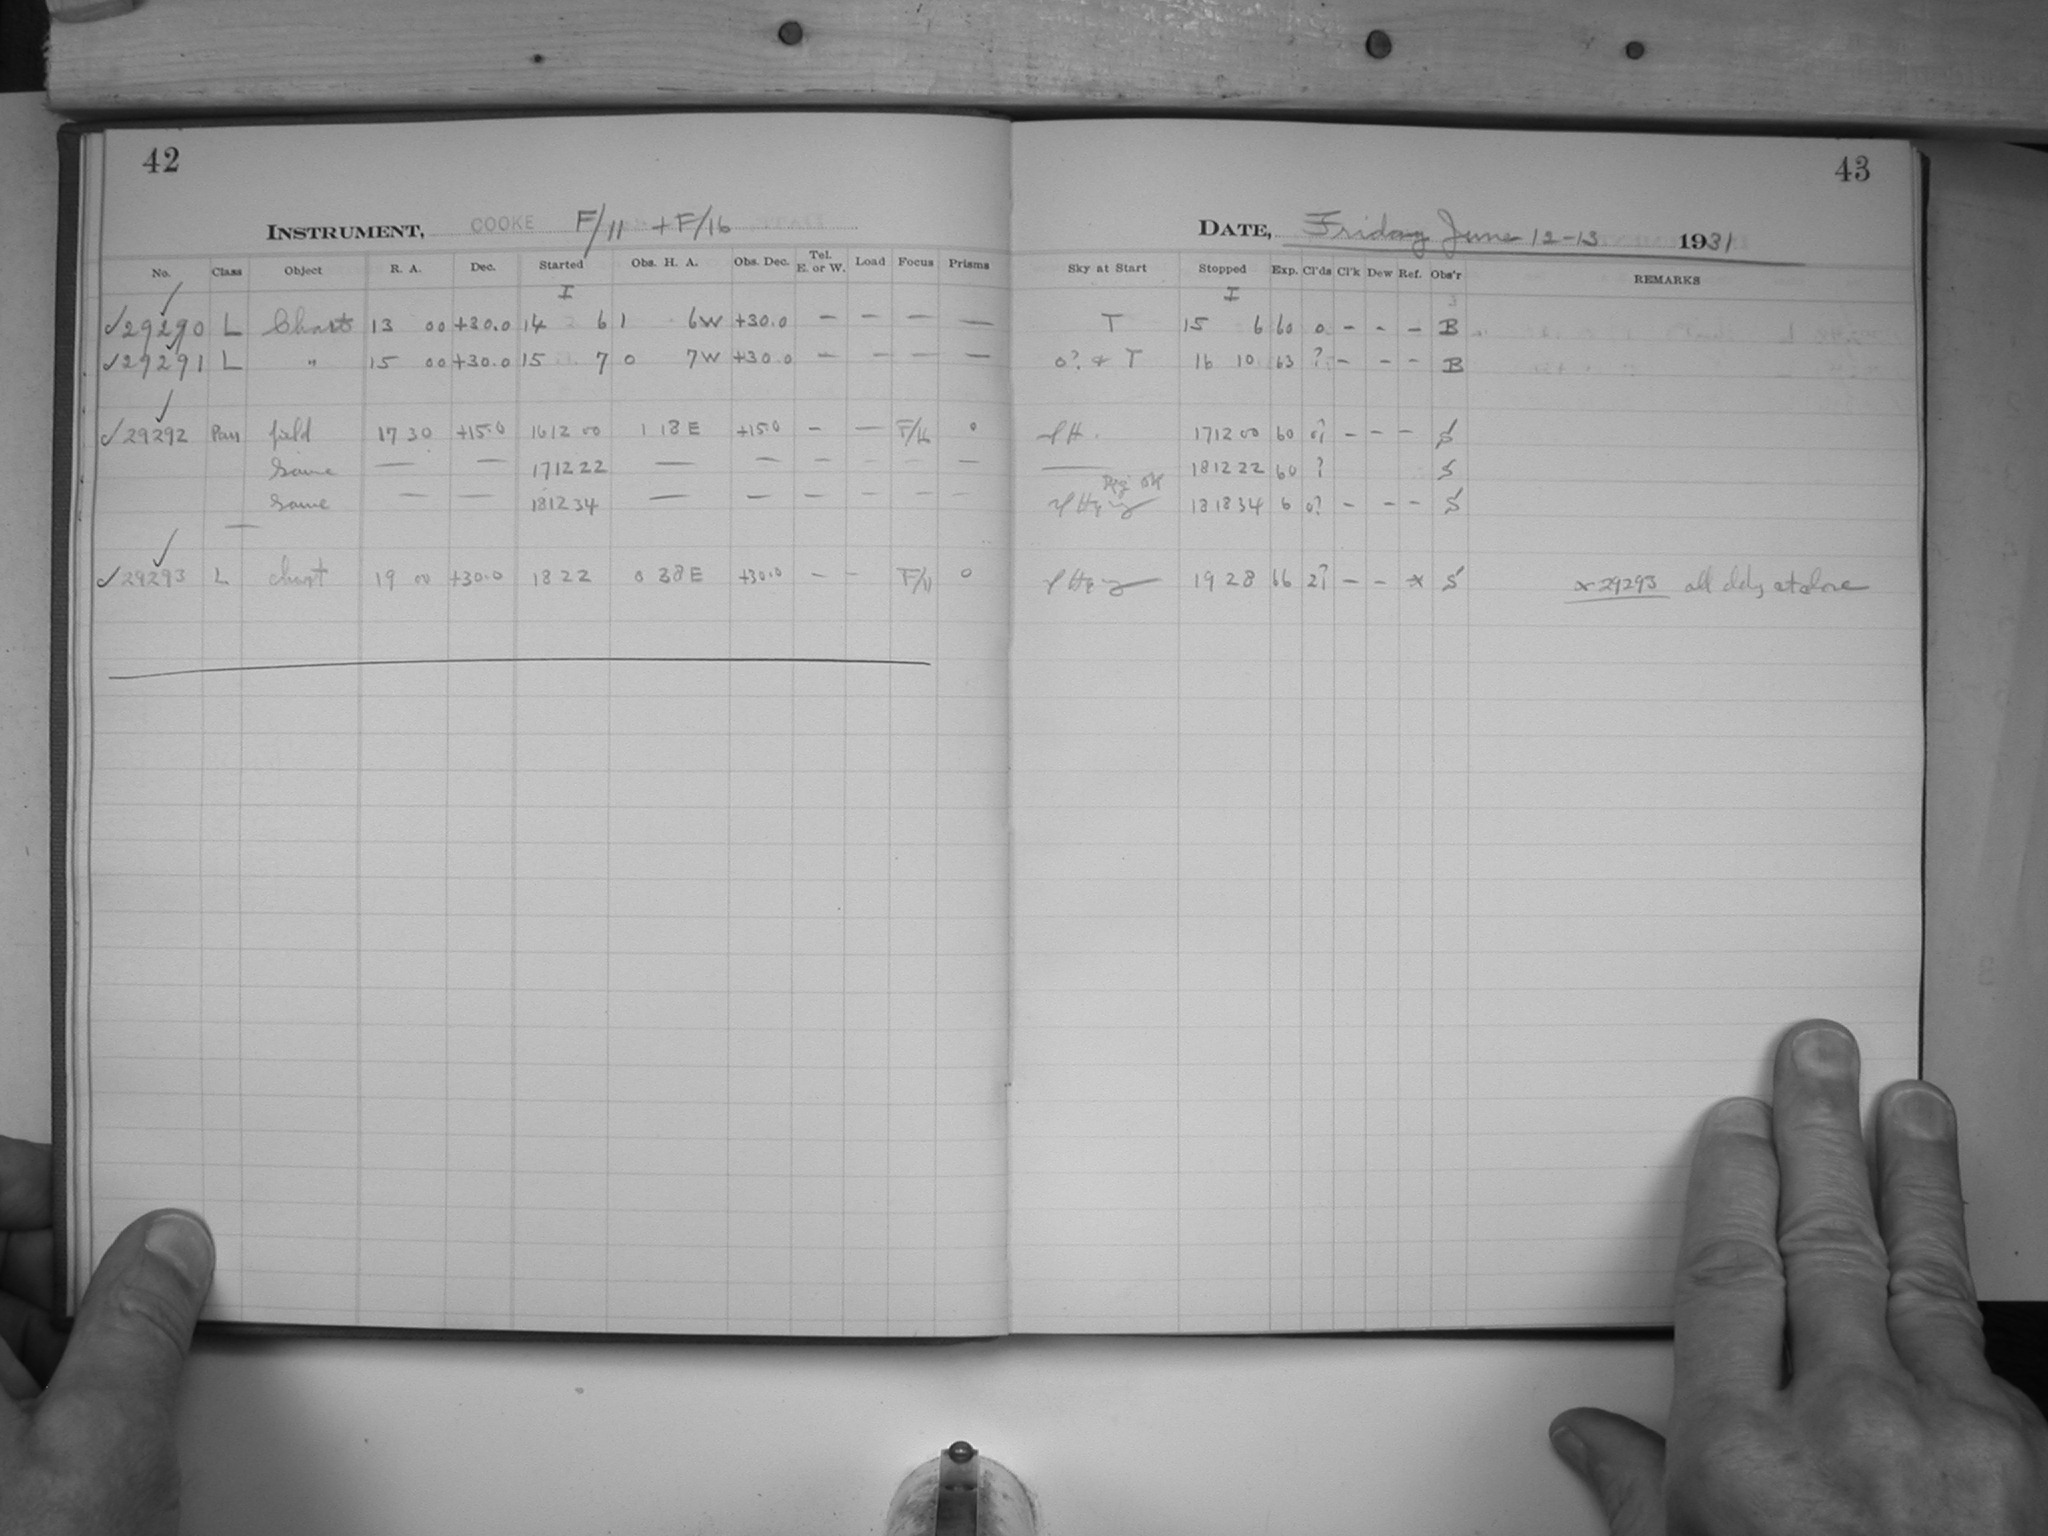 42
INSTRUMENT, COOKE F/11 + F/16
No. Class Object R. A. Dec. Started Obs. H. A. Obs. Dec. Tel. E. or W. Load Focus Prisms
I
✓29290 L Chart 13 00 +30.0 14 6 1 6W +30.0 — — — —
✓29291 L " 15 00 +30.0 15 7 0 7W +30.0 — — — —
✓29292 field 17 30 +15.0 16 12 00 1 18 E +15.0 - — F/16 0
Same — — 17 12 22 — — — — — —
Same — — 18 12 34 — — — — — —
✓29293 L chart 19 00 +30.0 18 22 0 38 E +30.0 — — F/11 0
43
DATE, Friday June 12-13 1931
Sky at Start Stopped Exp. Cl'ds Cl'k Dew Ref. Obs'r REMARKS
I
T 15 6 60 0 - - - B
0? & T 16 10 63 ? - - - B
17 12 00 60 0? - - - S
— 18 12 22 60 ? S
OK
18 18 34 6 0? - - - S
19 28 66 2? - - * S * 29293 all at